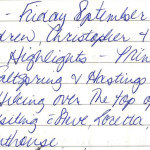 - Friday September
drew, Christopher &
Highlights - Prin
altspring & Hastings
Hiking over the top o
siting Dave Loretta,
nthouse